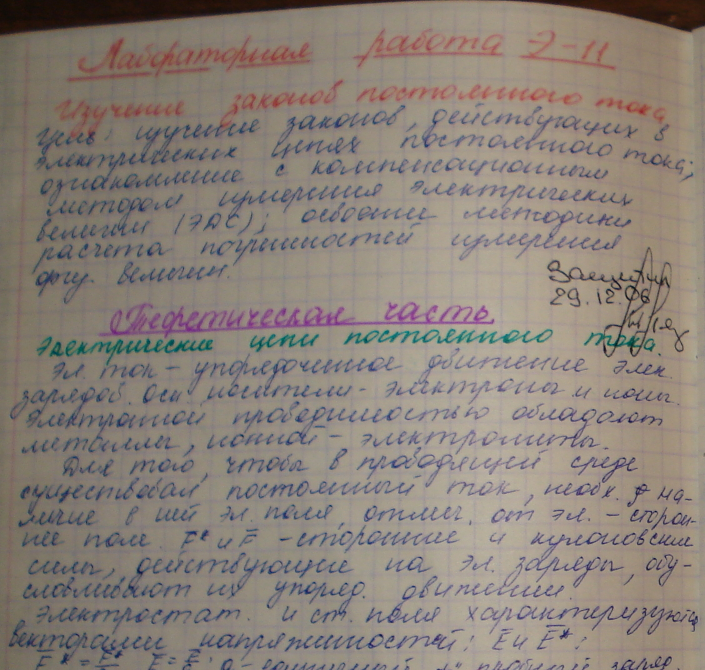 Лабораторная работа Э-11
Изучение законов постоянного тока.
Цель: изучение законов, действующих в
электрических цепях постоянного тока;
ознакомление с компенсационным
методом измерения электрических
величин (ЭДС); освоение методики
расчета погрешностей измерения
физ. величин.
29.12.06
Теоретическая часть.
Электрические цепи постоянного тока.
Эл. ток - упорядоченное движение элек.
зарядов. Осн. носители - электроны и ионы.
Электронной проводимостью обладают
металлы, ионной - электролиты.
Для того, чтобы в проводящей среде
существовал постоянный ток, необх. на-
личие в ней эл. поля, отлич. от эл. - сторон-
нее поле. F* и F - сторонние и кулоновские
силы, действующие на эл. заряды, обу-
словливают их упоряд. движение.
Электростат. и ст. поля характеризуются
векторами напряженностей: E и E*: